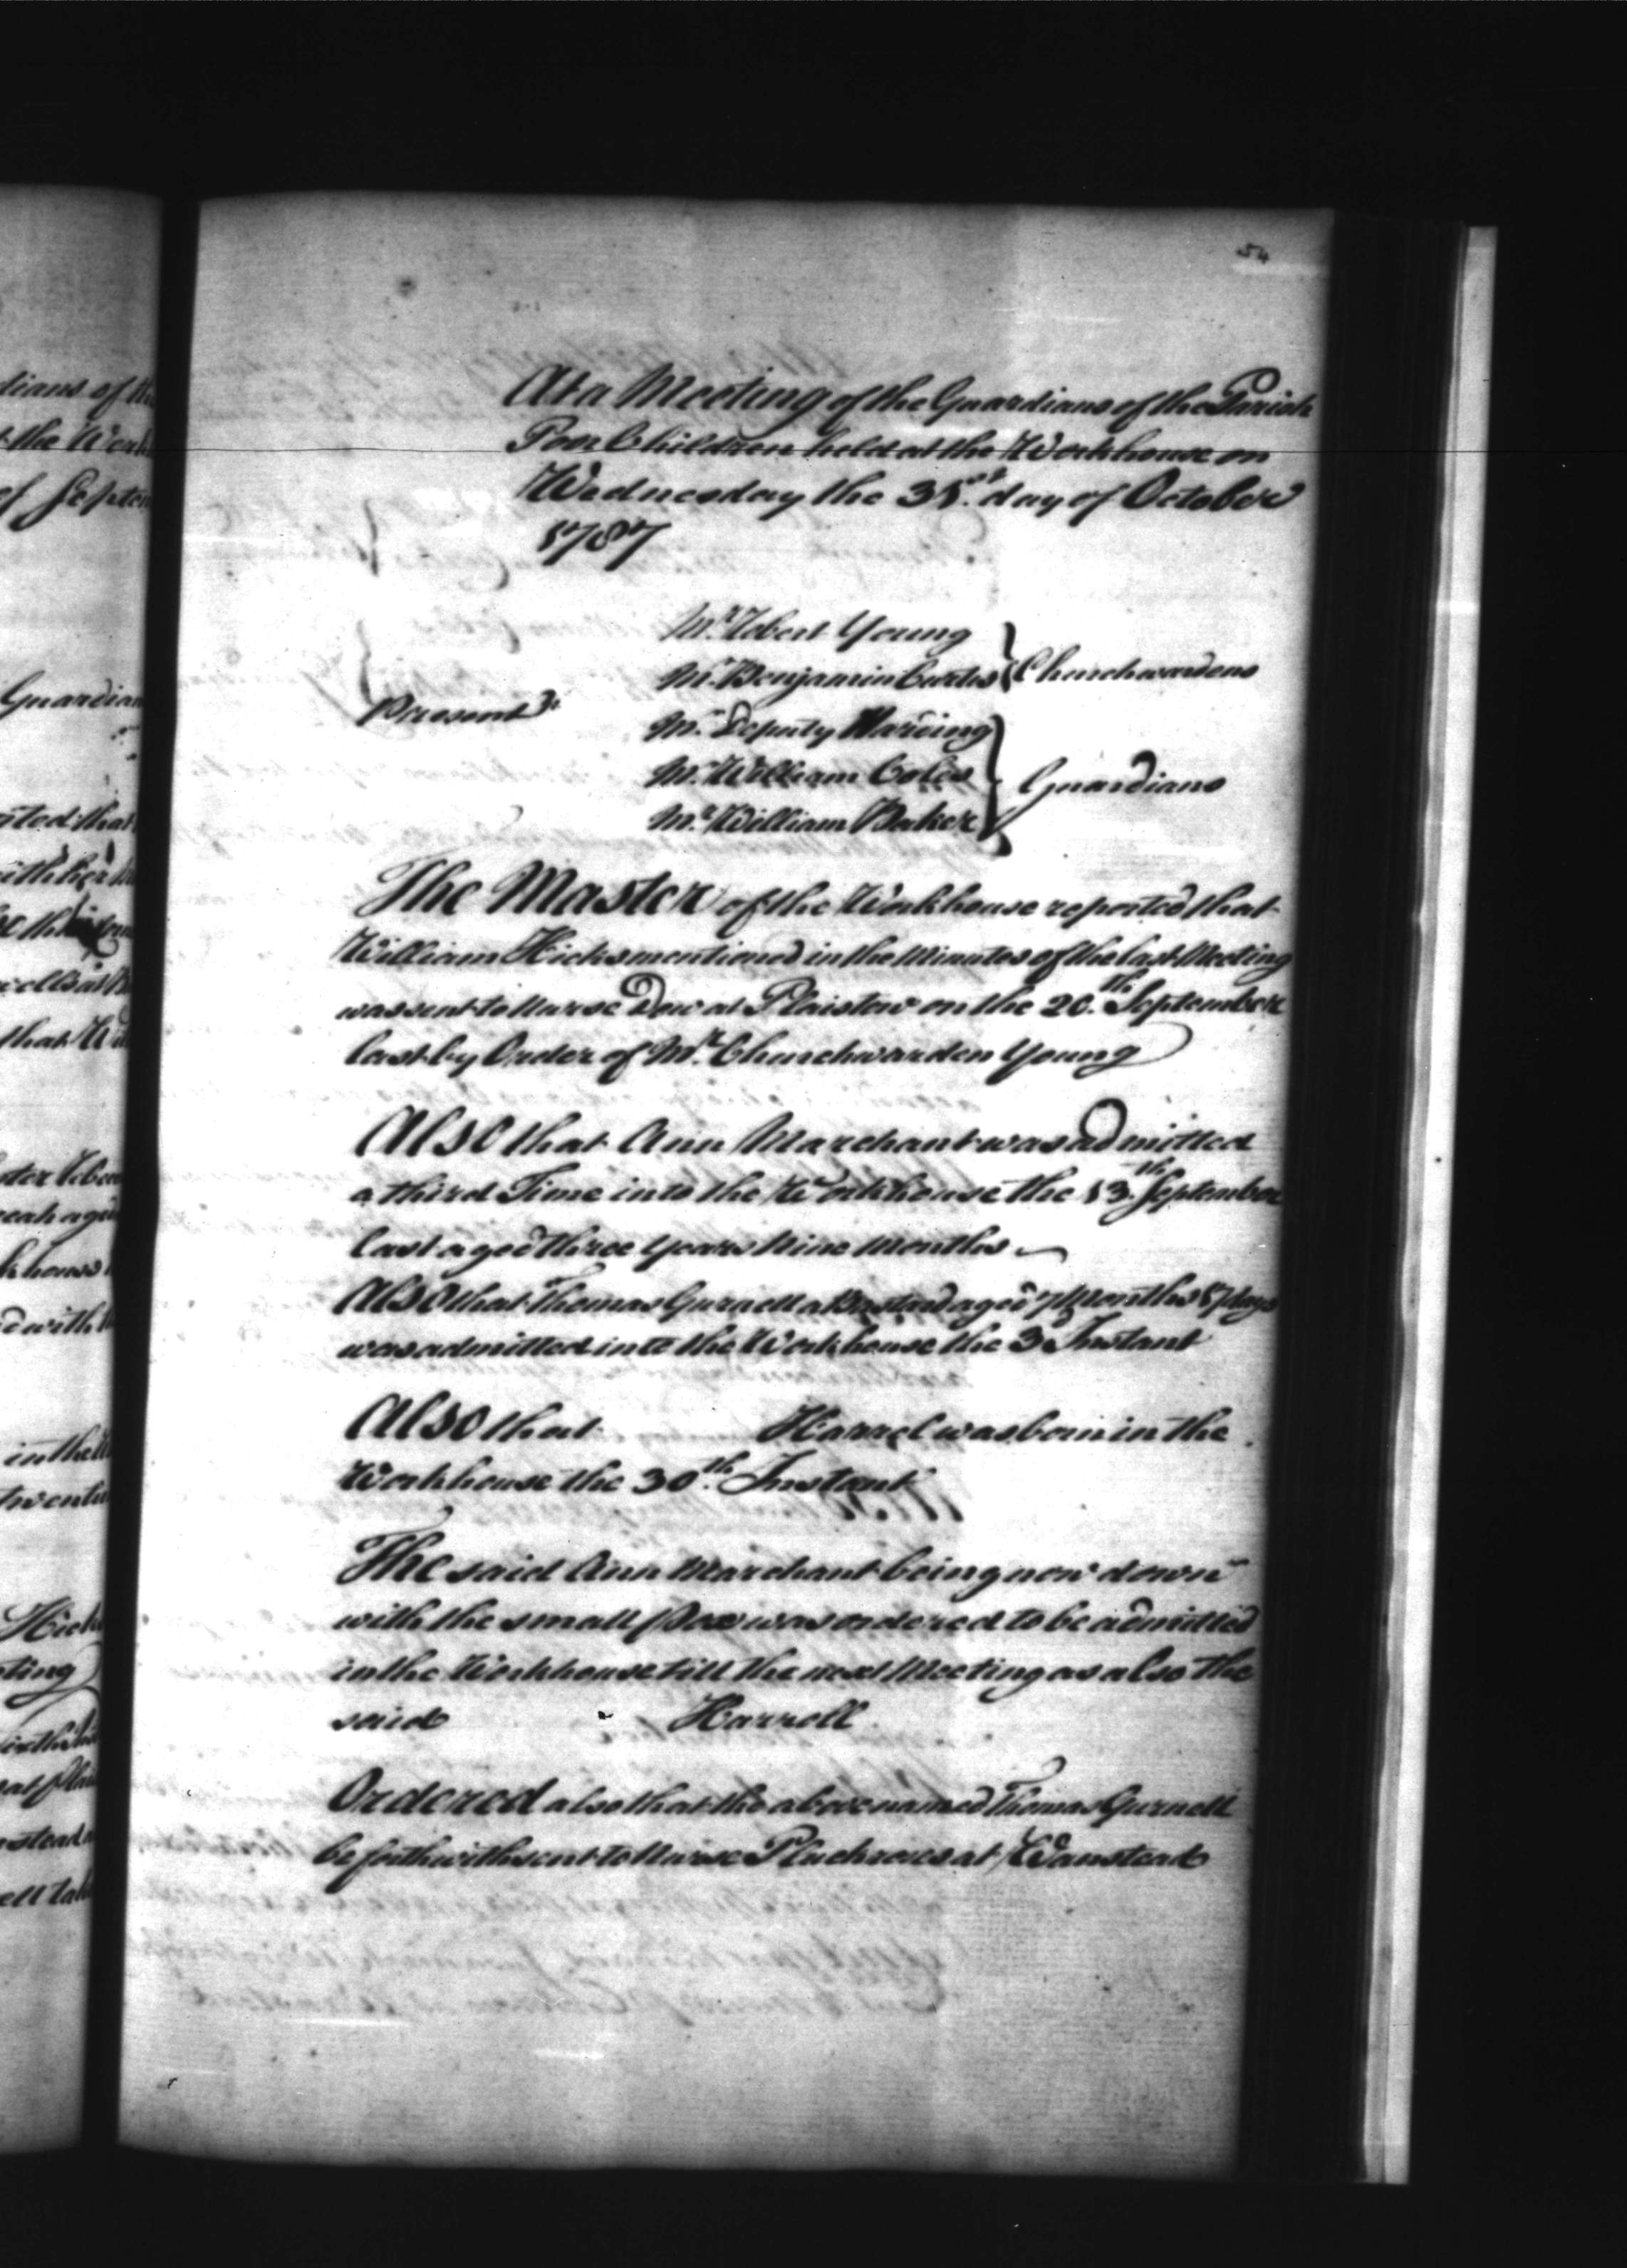 dians of the
t the Work
of Septem
Guardian
rted that
with her
that
in the
twenty
Hick
ting
54
At a Meeting of the Guardians of the Parish
Poor Children held at the Workhouse on
Wednesday the 31st. day of October
1787
Mr. Robert Young
Mr. Benjamin Curtis } Churchwardens
Present
Mr. Deputy Harding
Mr. William Coles } Guardians
Mr. William Baker
The Master of the Workhouse reported that
William Hicks mentioned in the Minutes of the last Meeting
was sent to Nurse Dow at Plaistow on the 20th. September
last by Order of Mr. Churchwarden Young
Also that Ann Marchant was admitted
a third Time into the Workhouse the 13th. September
last aged three Years Nine Months
Also that Thomas Gurnell a Bastard aged 7 Months 17 days
was admitted into the Workhouse the 3 Instant
Also that Harrel was born in the
Workhouse the 30th. Instant
The said Ann Marchant being now down
with the small Pox was ordered to be admitted
in the Workhouse till the next Meeting as also the
said Harrell
Ordered also that the above named Thomas Gurnell
be forthwith sent to Nurse at Wanstead